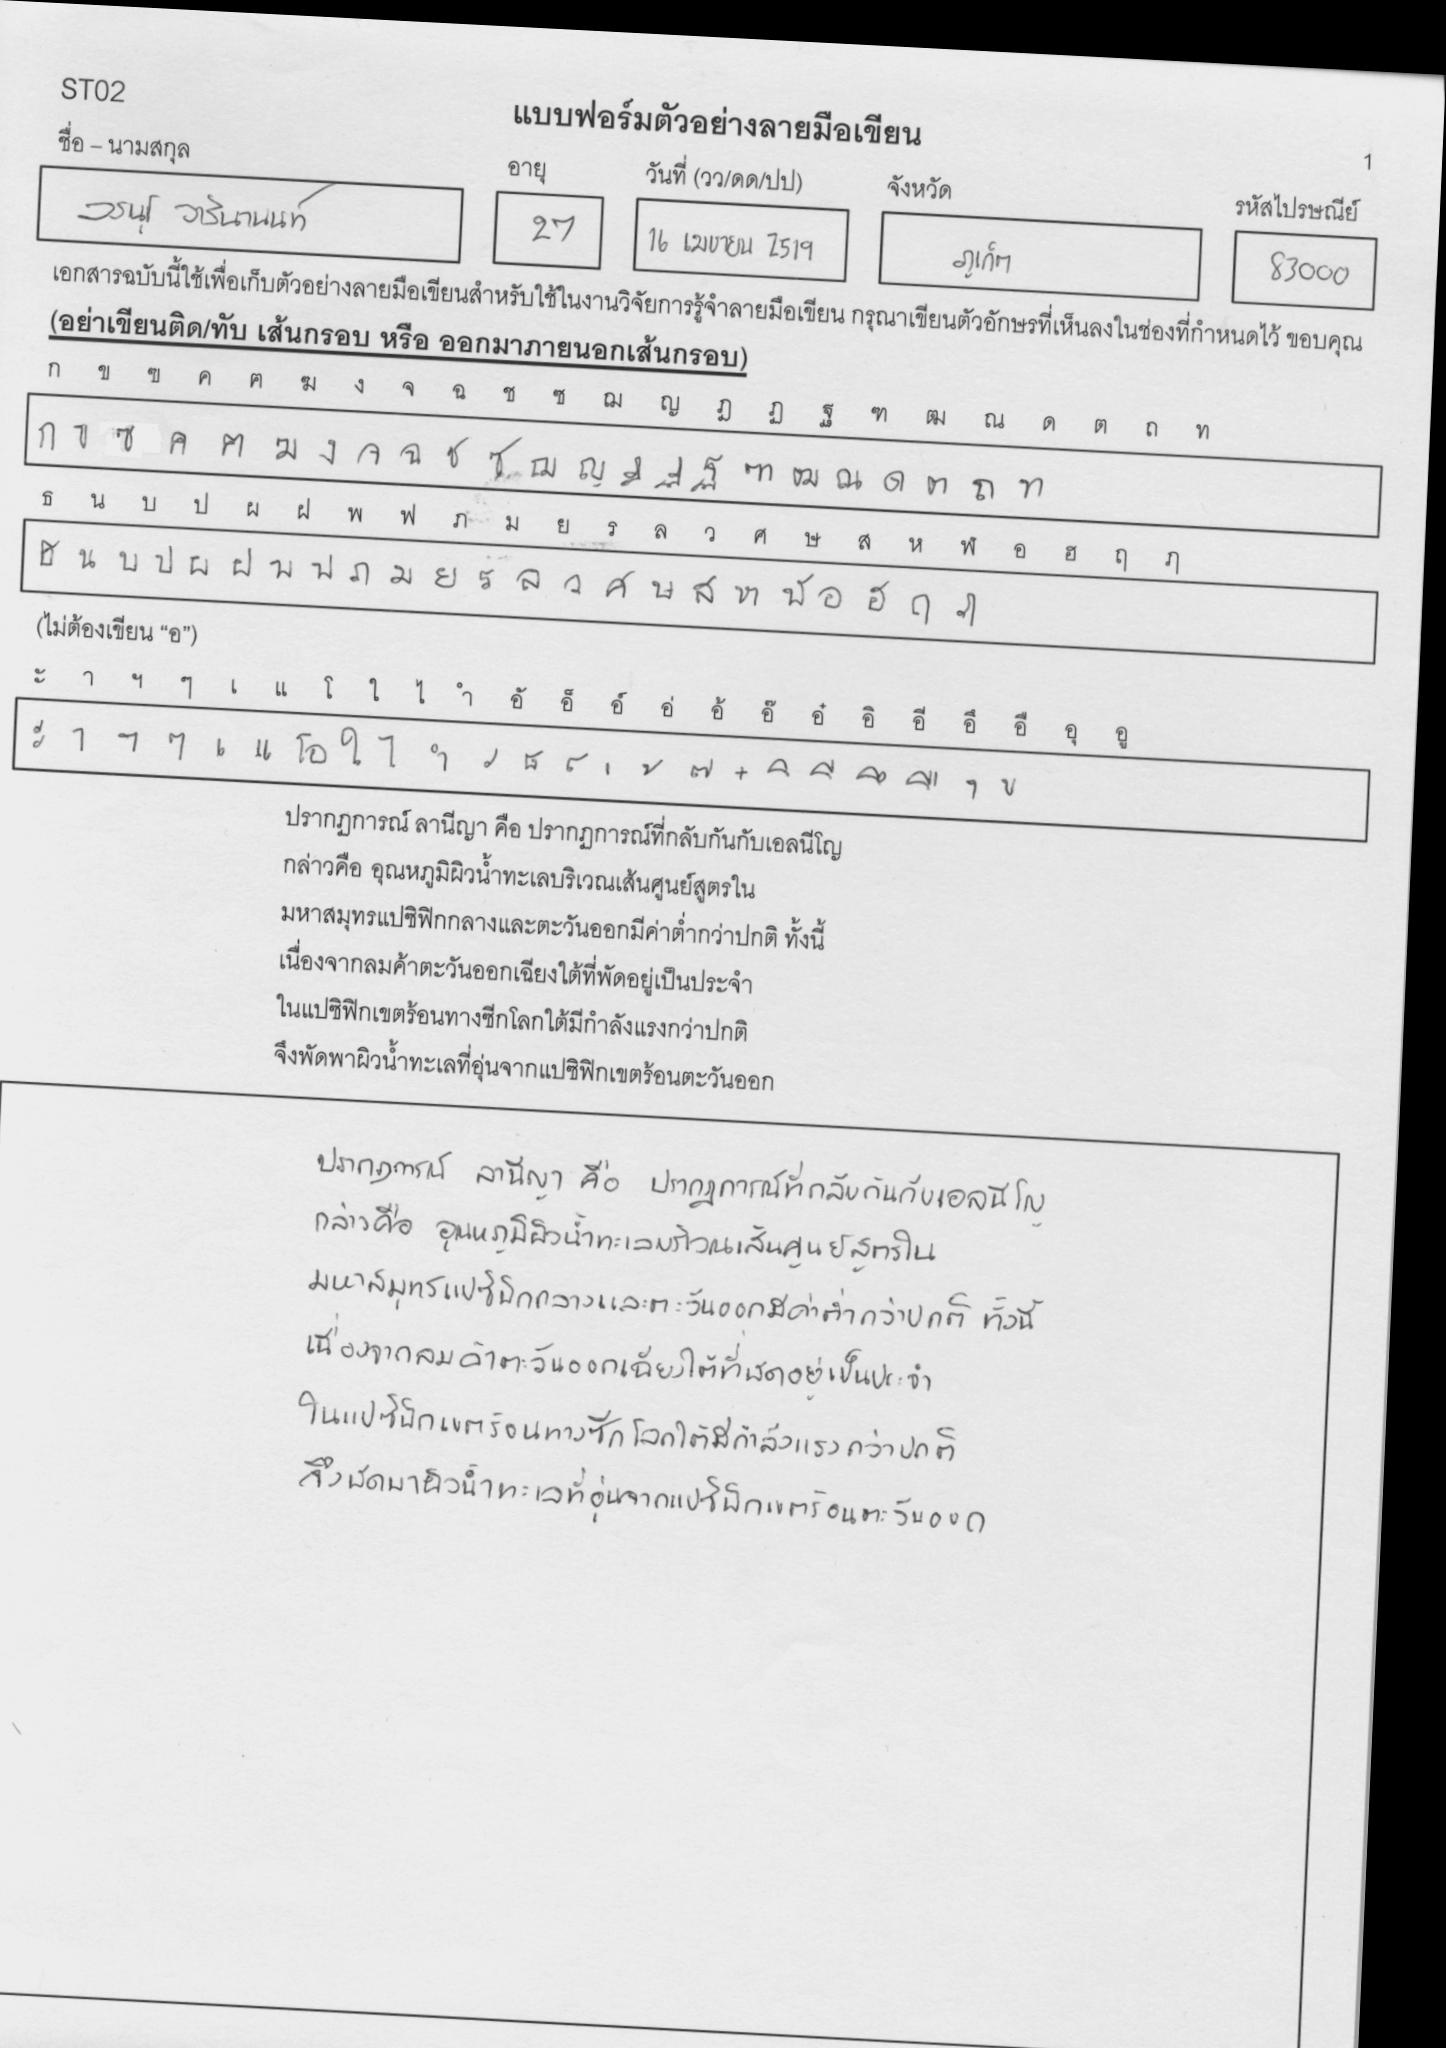 ST02
แบบฟอร์มตัวอย่างลายมือเขียน
1
ชื่อ – นามสกุล
อายุ
วันที่ (วว/ดด/ปป)
จังหวัด
รหัสไปรษณีย์
วรนุช วารินานนท์
27
16 เมษายน 2519
ภูเก็ต
83000
เอกสารฉบับนี้ใช้เพื่อเก็บตัวอย่างลายมือเขียนสำหรับใช้ในงานวิจัยการรู้จำลายมือเขียน กรุณาเขียนตัวอักษรที่เห็นลงในช่องที่กำหนดไว้ ขอบคุณ
(อย่าเขียนติด/ทับ เส้นกรอบ หรือ ออกมาภายนอกเส้นกรอบ)
ก ข ฃ ค ฅ ฆ ง จ ฉ ช ซ ฌ ญ ฎ ฏ ฐ ฑ ฒ ณ ด ต ถ ท
ก ข ฃ ค ฅ ฆ ง จ ฉ ช ซ ฌ ญ ฎ ฏ ฐ ฑ ฒ ณ ด ต ถ ท
ธ น บ ป ผ ฝ พ ฟ ภ ม ย ร ล ว ศ ษ ส ห ฬ อ ฮ ฤ ภ
ธ น บ ป ผ ฝ พ ฟ ภ ม ย ร ล ว ศ ษ ส ห ฬ อ ฮ ฤ ภ
(ไม่ต้องเขียน “อ”)
ะ า ฯ ๆ เ แ โ ใ ไ ำ อั อ็ อ์ อ่ อ้ อ๊ อ๋ อิ อี อึ อื อุ อู
ะ า ฯ ๆ เ แ โอ ใ ไ ำ ั ็ ์ ่ ้ ๊ ๋ ิ ี ึ ื ุ ู
ปรากฏการณ์ ลานีญา คือ ปรากฏการณ์ที่กลับกันกับเอลนีโญ
กล่าวคือ อุณหภูมิผิวน้ำทะเลบริเวณเส้นศูนย์สูตรใน
มหาสมุทรแปซิฟิกกลางและตะวันออกมีค่าต่ำกว่าปกติ ทั้งนี้
เนื่องจากลมค้าตะวันออกเฉียงใต้ที่พัดอยู่เป็นประจำ
ในแปซิฟิกเขตร้อนทางซีกโลกใต้มีกำลังแรงกว่าปกติ
จึงพัดพาผิวน้ำทะเลที่อุ่นจากแปซิฟิกเขตร้อนตะวันออก
ปรากฏการณ์ ลานีญา คือ ปรากฏการณ์ที่กลับกันกับเอลนีโญ
กล่าวคือ อุณหภูมิผิวน้ำทะเลบริเวณเส้นศูนย์สูตรใน
มหาสมุทรแปซิฟิกกลางและตะวันออกมีค่าต่ำกว่าปกติ ทั้งนี้
เนื่องจากลมค้าตะวันออกเฉียงใต้ที่พัดอยู่เป็นประจำ
ในแปซิฟิกเขตร้อนทางซีกโลกใต้มีกำลังแรงกว่าปกติ
จึงพัดพาผิวน้ำทะเลที่อุ่นจากแปซิฟิกเขตร้อนตะวันออก